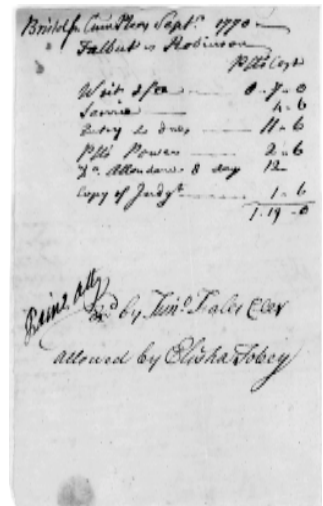 Bristol ss Com Pleas Septr. 1770
Talbut vs Robinson
Plfs Cost
Writ & fee — 0 - 7 - 0
Service — 4 - 6
Entry & dues — 11 - 6
Plfs Power — 2 - 6
Do. Attendance 8 day 12 -
Copy of Judgt. — 1 - 6
1 - 19 - 0
Paine atty
by Timo. Fales Cler
allowed by Elisha Tobey